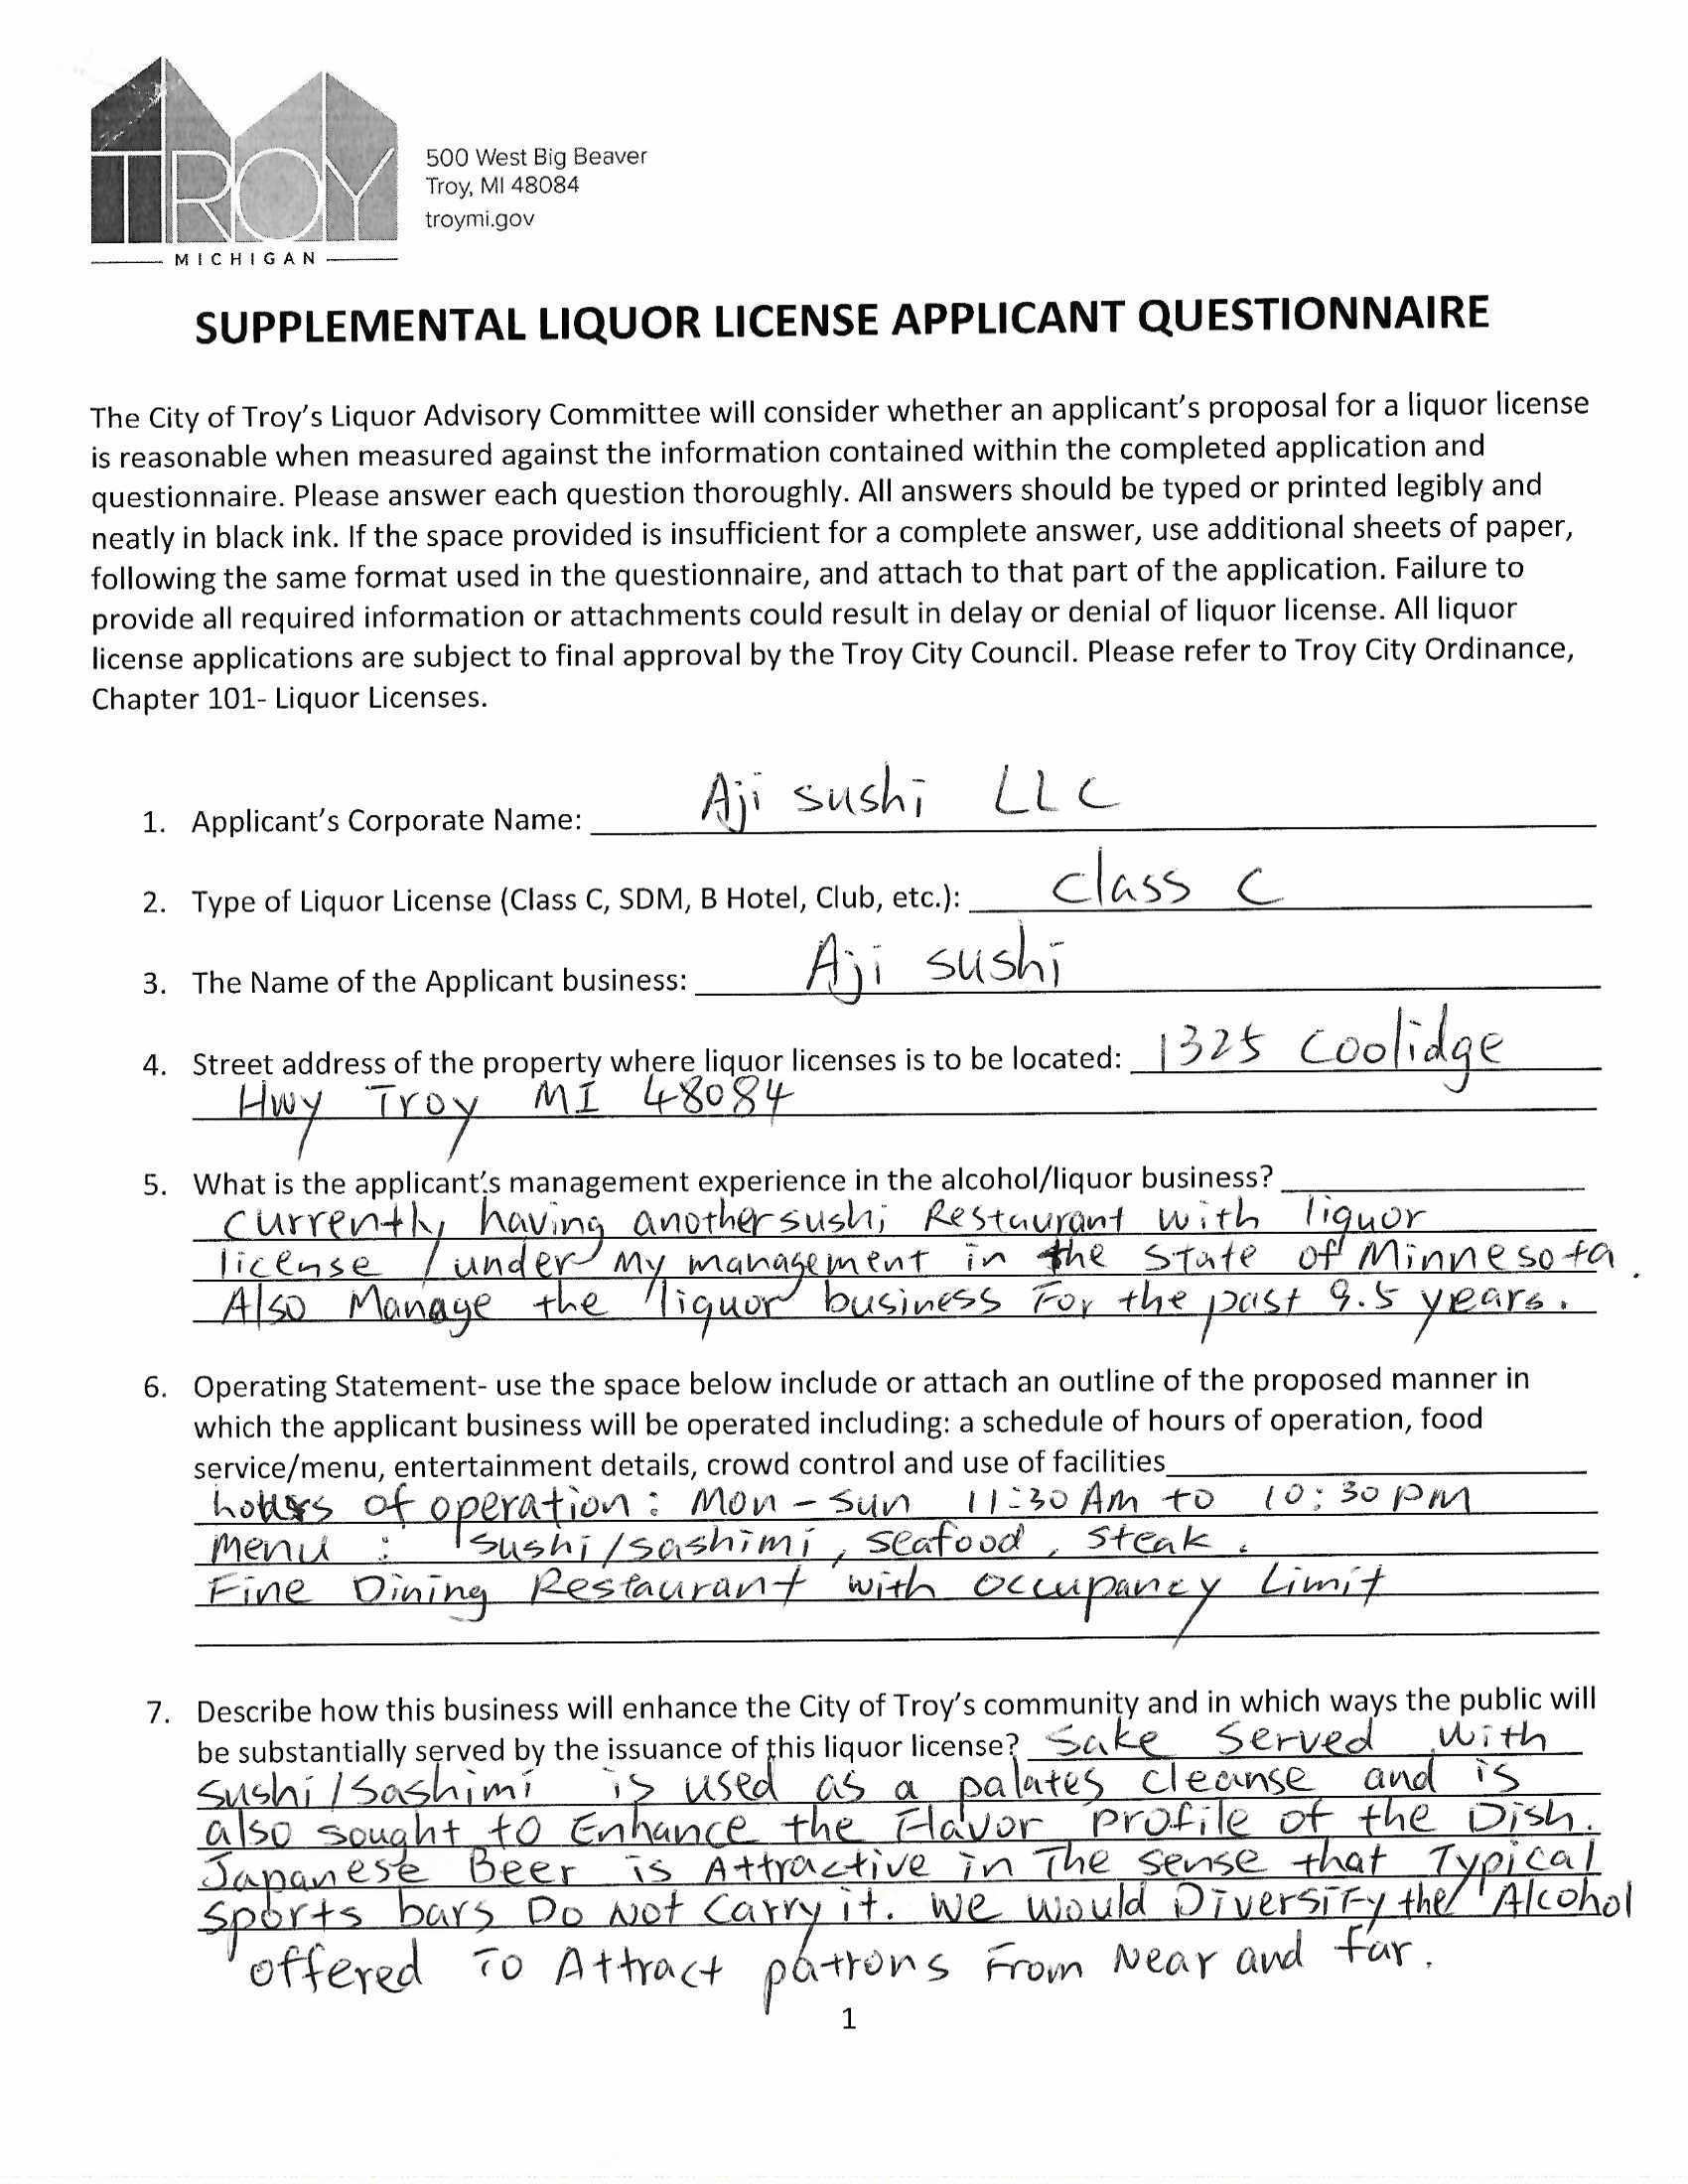 TROY
MICHIGAN
500 West Big Beaver
Troy, MI 48084
troymi.gov
SUPPLEMENTAL LIQUOR LICENSE APPLICANT QUESTIONNAIRE
The City of Troy's Liquor Advisory Committee will consider whether an applicant's proposal for a liquor license
is reasonable when measured against the information contained within the completed application and
questionnaire. Please answer each question thoroughly. All answers should be typed or printed legibly and
neatly in black ink. If the space provided is insufficient for a complete answer, use additional sheets of paper,
following the same format used in the questionnaire, and attach to that part of the application. Failure to
provide all required information or attachments could result in delay or denial of liquor license. All liquor
license applications are subject to final approval by the Troy City Council. Please refer to Troy City Ordinance,
Chapter 101- Liquor Licenses.
1. Applicant's Corporate Name: Aji sushi LLC
2. Type of Liquor License (Class C, SDM, B Hotel, Club, etc.): Class C
3. The Name of the Applicant business: Aji sushi
4. Street address of the property where liquor licenses is to be located: 1325 Coolidge
Hwy Troy MI 48084
5. What is the applicant's management experience in the alcohol/liquor business?
Currently having another sushi Restaurant with liquor
license / under My management in the State of Minnesota.
Also Manage the liquor business For the past 9.5 years.
6. Operating Statement- use the space below include or attach an outline of the proposed manner in
which the applicant business will be operated including: a schedule of hours of operation, food
service/menu, entertainment details, crowd control and use of facilities
hours of operation: Mon - Sun 11:30 AM to 10:30 PM
Menu : sushi/sashimi, seafood, steak.
Fine Dining Restaurant with Occupancy Limit
7. Describe how this business will enhance the City of Troy's community and in which ways the public will
be substantially served by the issuance of this liquor license? Sake Served with
Sushi/Sashimi is used as a palates cleanse and is
also sought to Enhance the Flavor profile of the Dish.
Japanese Beer is Attractive in The sense that Typical
Sports bars Do Not Carry it. We would Diversify the Alcohol
offered To Attract patrons From Near and far.
1